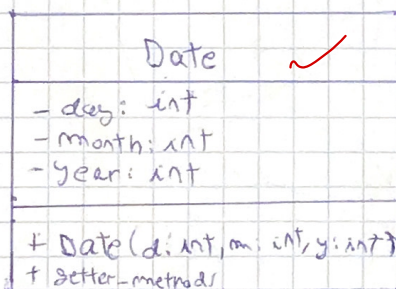 Date
- day: int
- month: int
- year: int
+ Date(d: int, m: int, y: int)
+ getter_metods